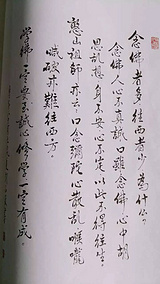 念佛者多往西者少為什么
念佛人心不真誠口雖念佛心中胡
思乱想身不安心不定以此不得往生
憨山祖師亦云口念彌陀心散乱喉嚨
喊破亦難往西方
學佛一定要至誠心修學一定有成